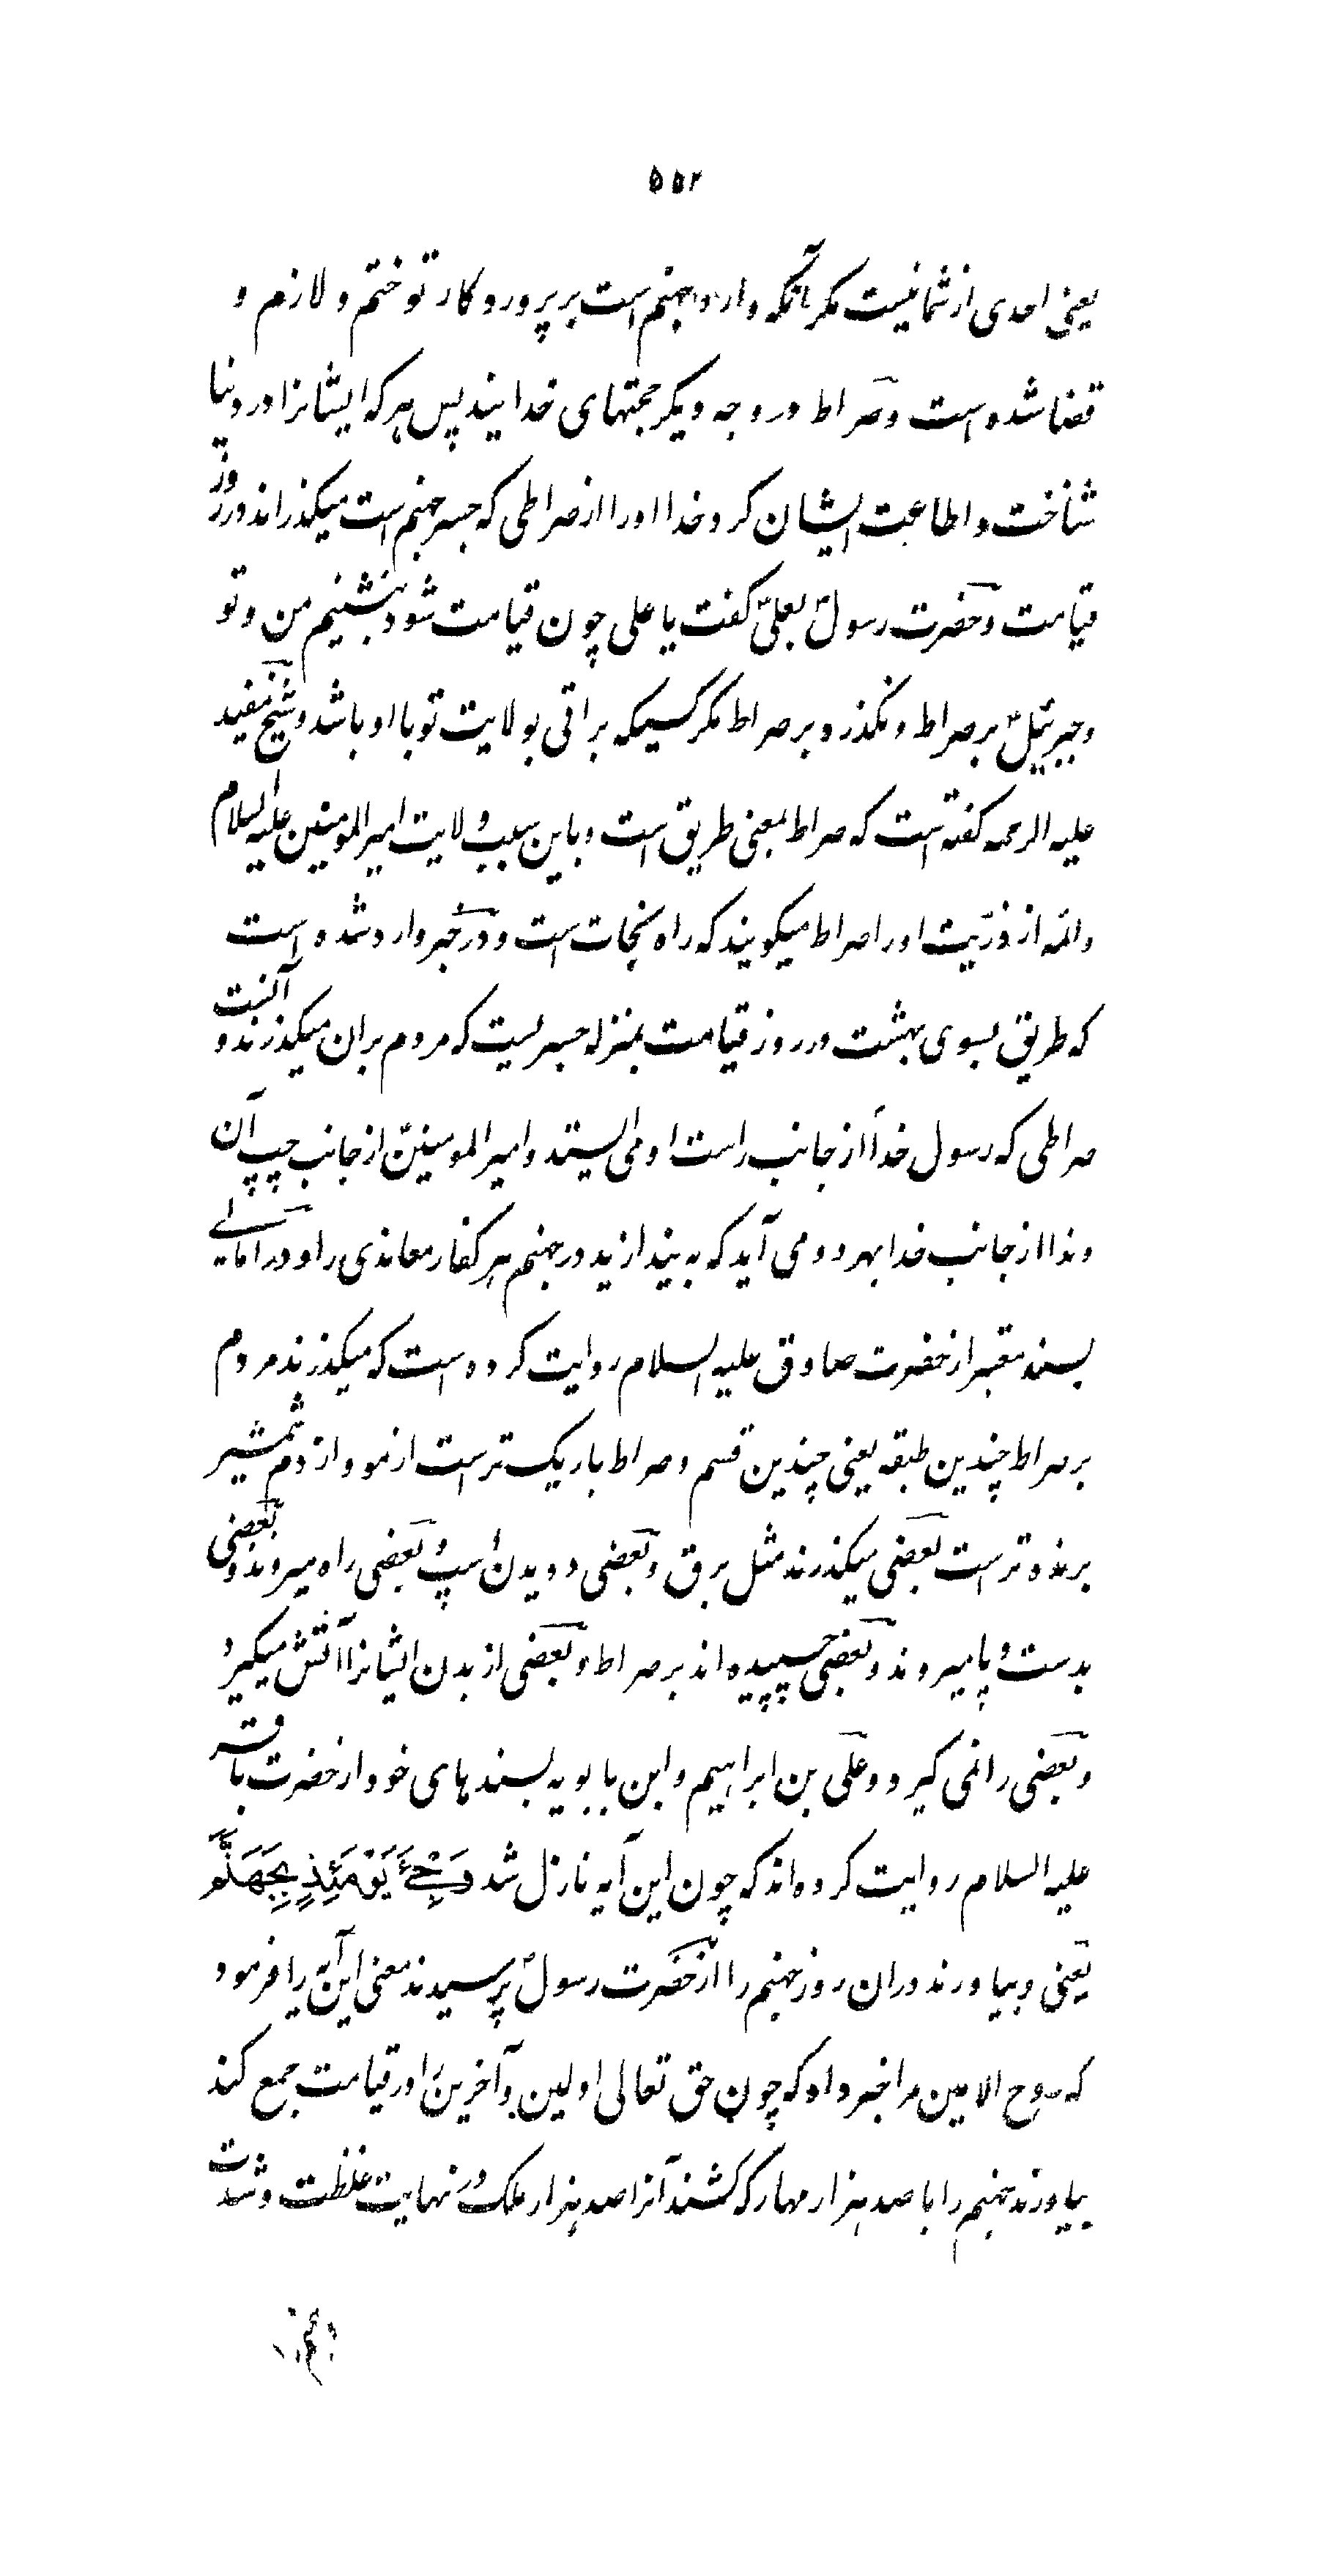 ۵۵۲
یعنی احدی از شما نیست مکر آنکه وارد جهنم است بر پروردکار تو ختم و لازم و
قضا شده است و صراط در وجه دیکر حجتهای خدایند پس هر که ایشانرا در دنیا
شناخت و اطاعت ایشان کرد خدا اورا از صراطی که جسر جهنم است میکذراند در روز
قیامت و حضرت رسول بعلی کفت یا علی چون قیامت شود بنشینم من و تو
و جبرئیل بر صراط و نکذرد بر صراط مکر کسیکه براتی بولایت تو با او باشد و شیخ مفید
علیه الرحمه کفته است که صراط بمعنی طریق است و باین سبب ولایت امیر المومنین علیه السلام
و ائمه از ذریت اورا صراط میکویند که راه نجات است و در خبر وارد شده است
که طریق بسوی بهشت در روز قیامت بمنزله جسریست که مردم بران میکذرند و آنست
صراطی که رسول خدا از جانب راست او می ایستد و امیر المومنین از جانب چپ آن
و ندا از جانب خدا بهر دو می آید که بیندازید در جهنم هر کفار معاندی را و در امالی
بسند معتبر از حضرت صادق علیه السلام روایت کرده است که میکذرند مردم
بر صراط چندین طبقه یعنی چندین قسم و صراط باریک تر است از مو و از دم شمشیر
برنده تر است بعضی میکذرند مثل برق و بعضی دویدن اسپ و بعضی راه میروند و بعضی
بدست و پا میروند و بعضی چسپیده اند بر صراط و بعضی از بدن ایشانرا آتش میکیرد
و بعضی را نمی کیرد و علی بن ابراهیم و ابن بابویه بسندهای خود از حضرت باقر
علیه السلام روایت کرده اند که چون این آیه نازل شد وَجِیْٓءَ یَوْمَئِذٍ بِجَهَنَّمَ
یعنی و بیاورند دران روز جهنم را از حضرت رسول پرسیدند معنی این آیه را فرمود
که روح الامین مرا خبر داد که چون حق تعالی اولین و آخرین را در قیامت جمع کند
بیاورند جهنم را با صد هزار مهار که کشند آنرا صد هزار ملک در نهایت غلظت و شدت